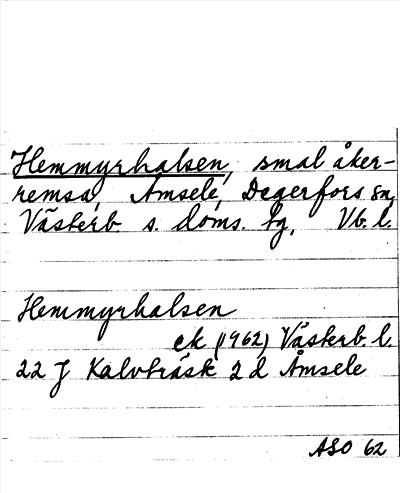 Hemmyrhalsen, smal åker-
remsa, Åmsele, Degerfors sn,
Västerb s. doms. tg, Vb. l.
Hemmyrhalsen
ek (1962) Västerb. l.
22 J Kalvträsk 2 d Åmsele
ASO 62